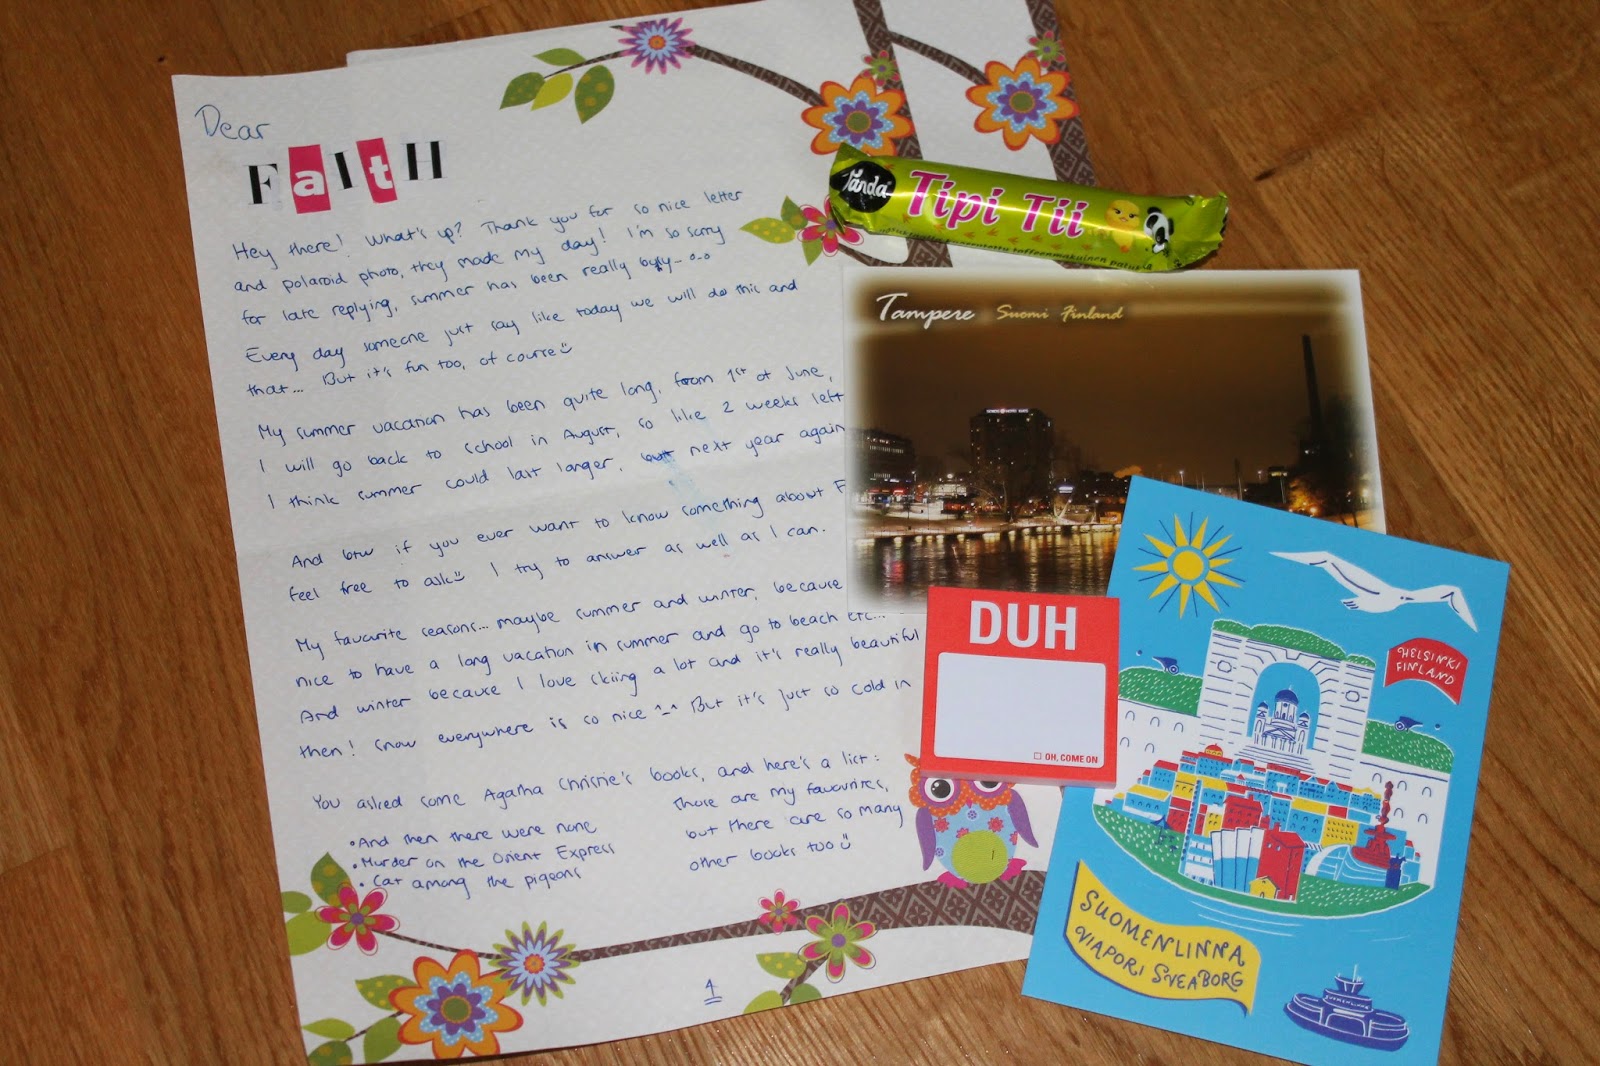 Dear
FaItH
Hey there! What's up? Thank you for so nice letter
and polaroid photo, they made my day! I'm so sorry
for late replying, summer has been really busy...
Every day someone just say like today we will do this and
that... But it's fun too, of course
My summer vacation has been quite long, from 1st of June,
I will go back to school in August, so like 2 weeks left
I think summer could last longer, next year again
And btw if you ever want to know something about F
feel free to ask I try to answer as well as I can.
My favourite seasons... maybe summer and winter, because
nice to have a long vacation in summer and go to beach etc...
And winter because I love skiing a lot and it's really beautiful
then! Snow everywhere is so nice ^_^ But it's just so cold in
You asked some Agatha Christie's books, and here's a list:
•And then there were none
•Murder on the Orient Express
•Cat among the pigeons
Those are my favourites,
but there are so many
other books too
1
Panda
Tipi Tii
toffeenmakuinen
Tampere Suomi Finland
DUH
OH, COME ON
HELSINKI
FINLAND
SUOMENLINNA
VIAPORI SVEABORG
SUOMENLINNA